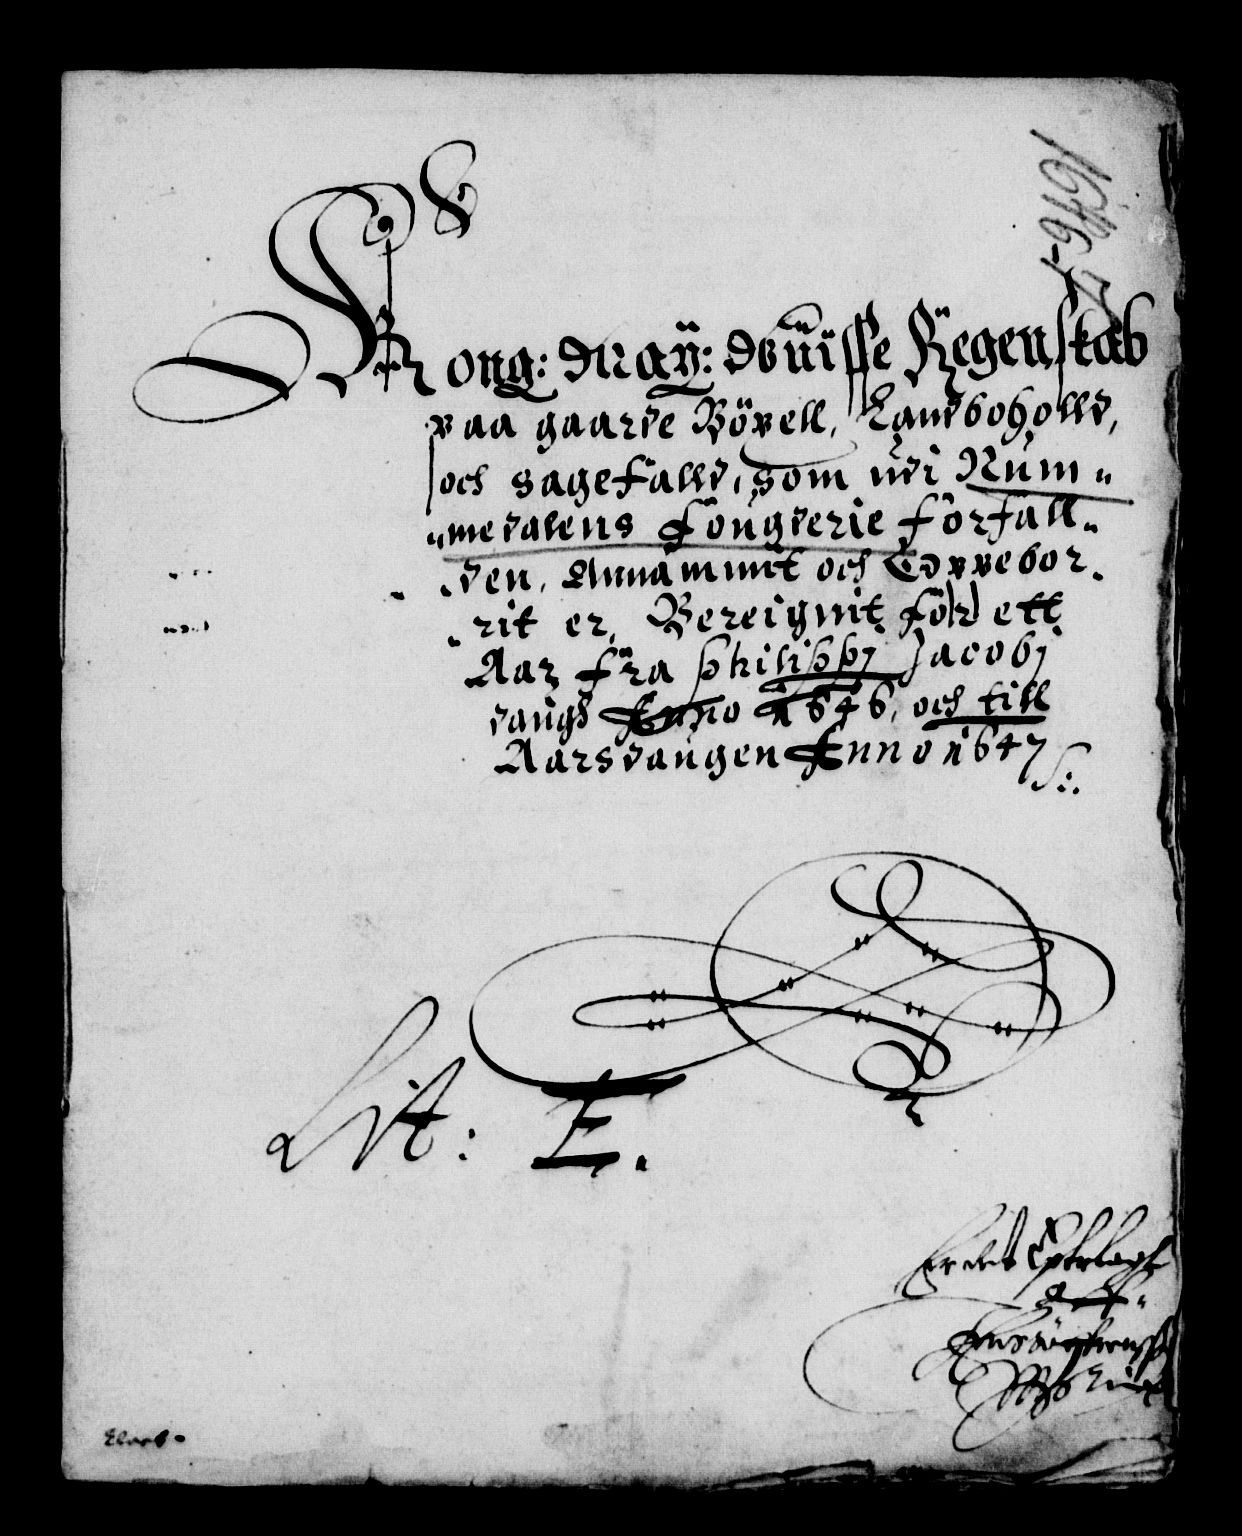 1646
1647
Kong: May: Vuisse Regenskab
paa gaarde Böxell, Landboholld,
och sagefalld, som udi Num=
=medalens fougderie forfall=
=den, Annammit och Oppebor=
=rit er, Bereignit for ett
Aar fra philippj Jacobj
daugs Anno 1646, och till
Aarsdaugen Anno 1647
Lit: E.